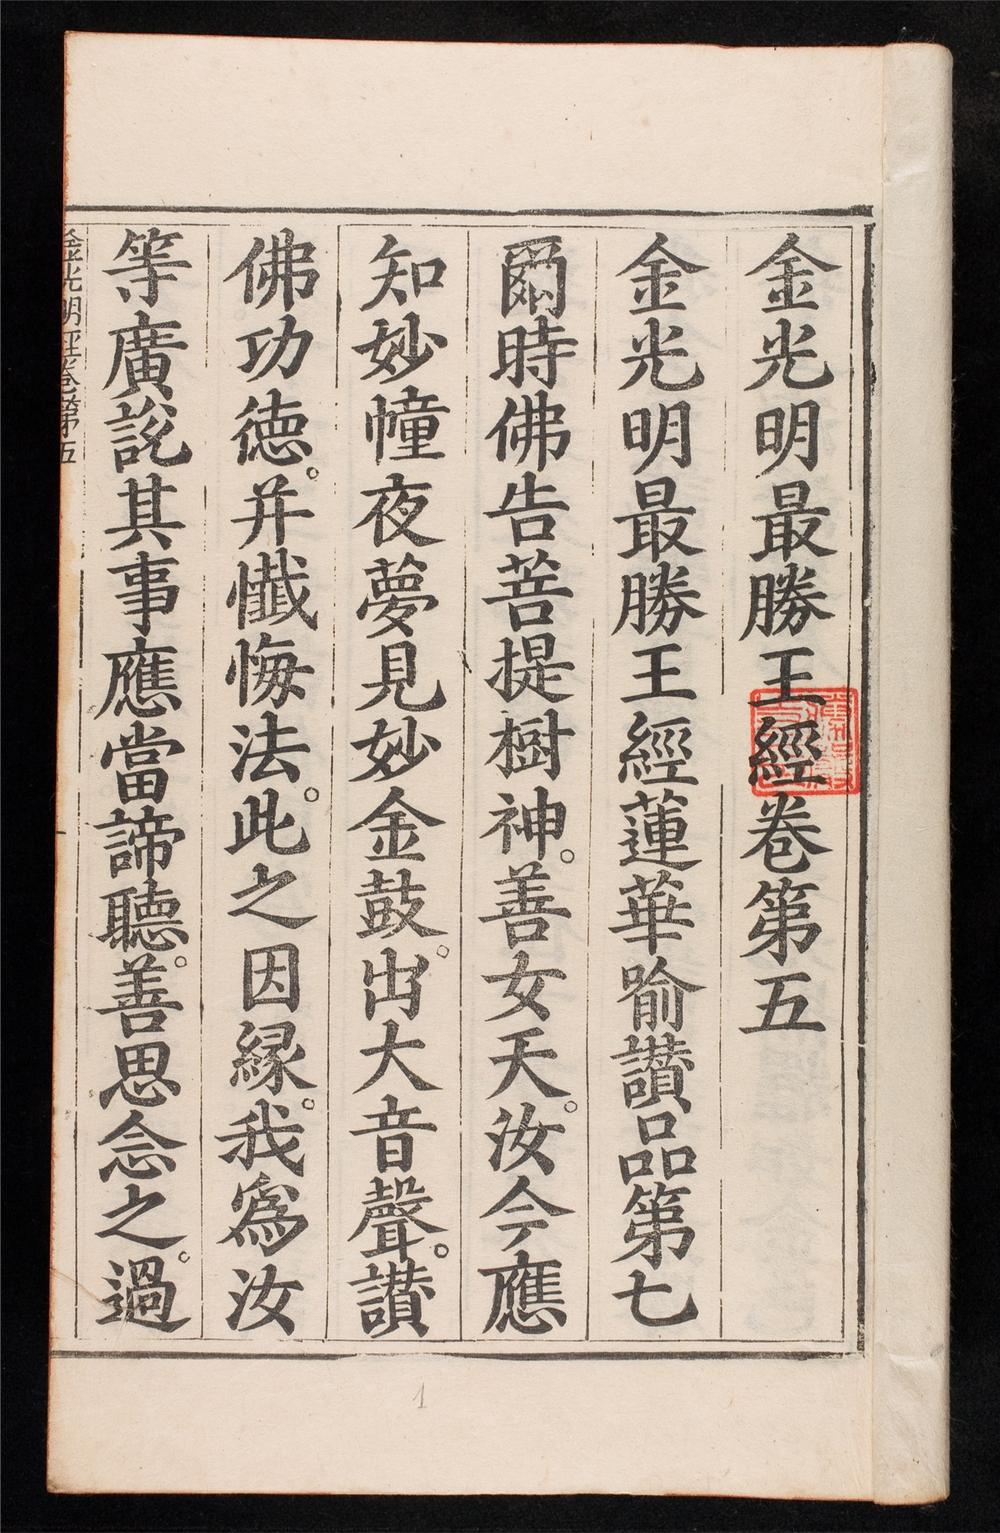 金光明最勝王經卷第五
金光明最勝王經蓮華喻讃品第七
爾時佛告菩提樹神。善女天。汝今應
知妙幢夜夢見妙金鼓。出大音聲。讃
佛功徳。并懺悔法。此之因緣。我爲汝
等廣說其事應當諦聽。善思念之。過
金光明經卷第五
1